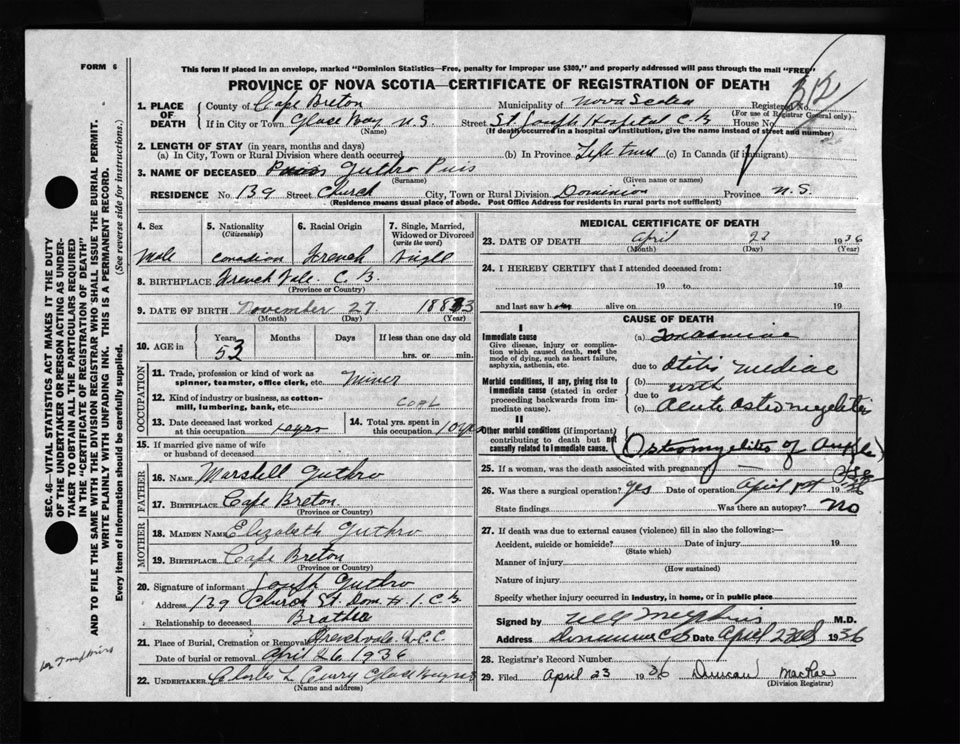 FORM 6
This form if placed in an envelope, marked "Dominion Statistics—Free, penalty for improper use $300," and properly addressed will pass through the mail "FREE"
PROVINCE OF NOVA SCOTIA—CERTIFICATE OF REGISTRATION OF DEATH
1. PLACE OF DEATH County of Cape Breton Municipality of Nova Scotia Registered No.
(For use of Registrar General only)
If in City or Town Glace Bay N.S. Street St. Joseph Hospital C.B. House No.
(Name) (If death occurred in a hospital or institution, give the name instead of street and number)
2. LENGTH OF STAY (in years, months and days)
(a) In City, Town or Rural Division where death occurred (b) In Province Life time (c) In Canada (if immigrant)
3. NAME OF DECEASED Guthro Pius
(Surname) (Given name or names)
RESIDENCE No. 139 Street Church City, Town or Rural Division Dominion Province N.S.
(Residence means usual place of abode. Post Office Address for residents in rural parts not sufficient)
4. Sex 5. Nationality (Citizenship) 6. Racial Origin 7. Single, Married, Widowed or Divorced (write the word)
Male Canadian French Single
8. BIRTHPLACE French Vale C.B.
(Province or Country)
9. DATE OF BIRTH November 27 1883
(Month) (Day) (Year)
10. AGE in Years Months Days If less than one day old
53 hrs. or min.
OCCUPATION
11. Trade, profession or kind of work as spinner, teamster, office clerk, etc. Miner
12. Kind of industry or business, as cotton-mill, lumbering, bank, etc. Coal
13. Date deceased last worked at this occupation 14. Total yrs. spent in this occupation
15. If married give name of wife or husband of deceased
FATHER
16. NAME Marshell Guthro
17. BIRTHPLACE Cape Breton
(Province or Country)
MOTHER
18. MAIDEN NAME Elizabeth Guthro
19. BIRTHPLACE Cape Breton
(Province or Country)
20. Signature of informant Joseph Guthro
Address 139 Church St. Dom # 1. C.B.
Relationship to deceased Brother
21. Place of Burial, Cremation or Removal Frenchvale
Date of burial or removal April 26, 1936
22. UNDERTAKER Charles L Curry Glace Bay NS
(Name and address)
MEDICAL CERTIFICATE OF DEATH
23. DATE OF DEATH April 22 1936
(Month) (Day) (Year)
24. I HEREBY CERTIFY that I attended deceased from:
19 to 19
and last saw h alive on 19
CAUSE OF DEATH
I
Immediate cause
Give disease, injury or complication which caused death, not the mode of dying, such as heart failure, asphyxia, asthenia, etc.
(a) Toxaemia
due to Otitis Mediae
Morbid conditions, if any, giving rise to immediate cause (stated in order proceeding backwards from immediate cause).
(b) with
due to
(c) Acute Osteomyelitis
II
Other morbid conditions (if important) contributing to death but not causally related to immediate cause.
(Osteomyelitis of
25. If a woman, was the death associated with pregnancy?
26. Was there a surgical operation? Yes Date of operation April 1st 1936
State findings Was there an autopsy? No
27. If death was due to external causes (violence) fill in also the following:—
Accident, suicide or homicide? Date of injury 19
(State which)
Manner of injury
(How sustained)
Nature of injury
Specify whether injury occurred in industry, in home, or in public place
Signed by M.D.
Address Dominion CB Date April 23rd 1936
28. Registrar's Record Number
29. Filed April 23 1936 Duncan MacRae
(Division Registrar)
SEC. 46—VITAL STATISTICS ACT MAKES IT THE DUTY OF THE UNDERTAKER OR PERSON ACTING AS UNDERTAKER TO OBTAIN ALL THE PARTICULARS REQUIRED IN THE "CERTIFICATE OF REGISTRATION OF DEATH"
AND TO FILE THE SAME WITH THE DIVISION REGISTRAR WHO SHALL ISSUE THE BURIAL PERMIT.
WRITE PLAINLY WITH UNFADING INK. THIS IS A PERMANENT RECORD.
Every item of information should be carefully supplied. (See reverse side for instructions.)